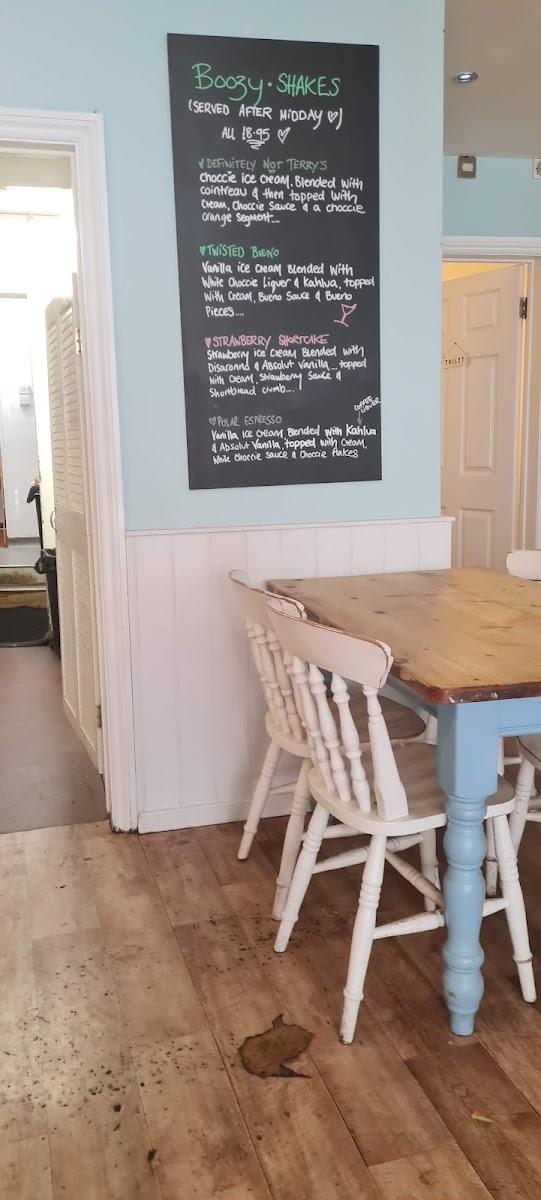 Boozy · SHAKES
(SERVED AFTER MIDDAY ♡)
ALL £8·95 ♡
♥ DEFINITELY NOT TERRY'S
Choccie ice cream, Blended with
Cointreau & then topped with
Cream, Choccie Sauce & a choccie
orange Segment....
♥ TWISTED BUENO
Vanilla ice cream Blended with
White Choccie Liquer & Kahlua, topped
With Cream, Bueno Sauce & Bueno
Pieces....
♥ STRAWBERRY SHORTCAKE
Strawberry ice cream Blended with
Disaronno & Absolut Vanilla... topped
with Cream, Strawberry Sauce &
Shortbread crumb....
COFFEE
LIQUER
♡ POLAR ESPRESSO
Vanilla ice cream, Blended with Kahlua
& Absolut Vanilla, topped with cream,
White Choccie Sauce & Choccie flakes
TOILET